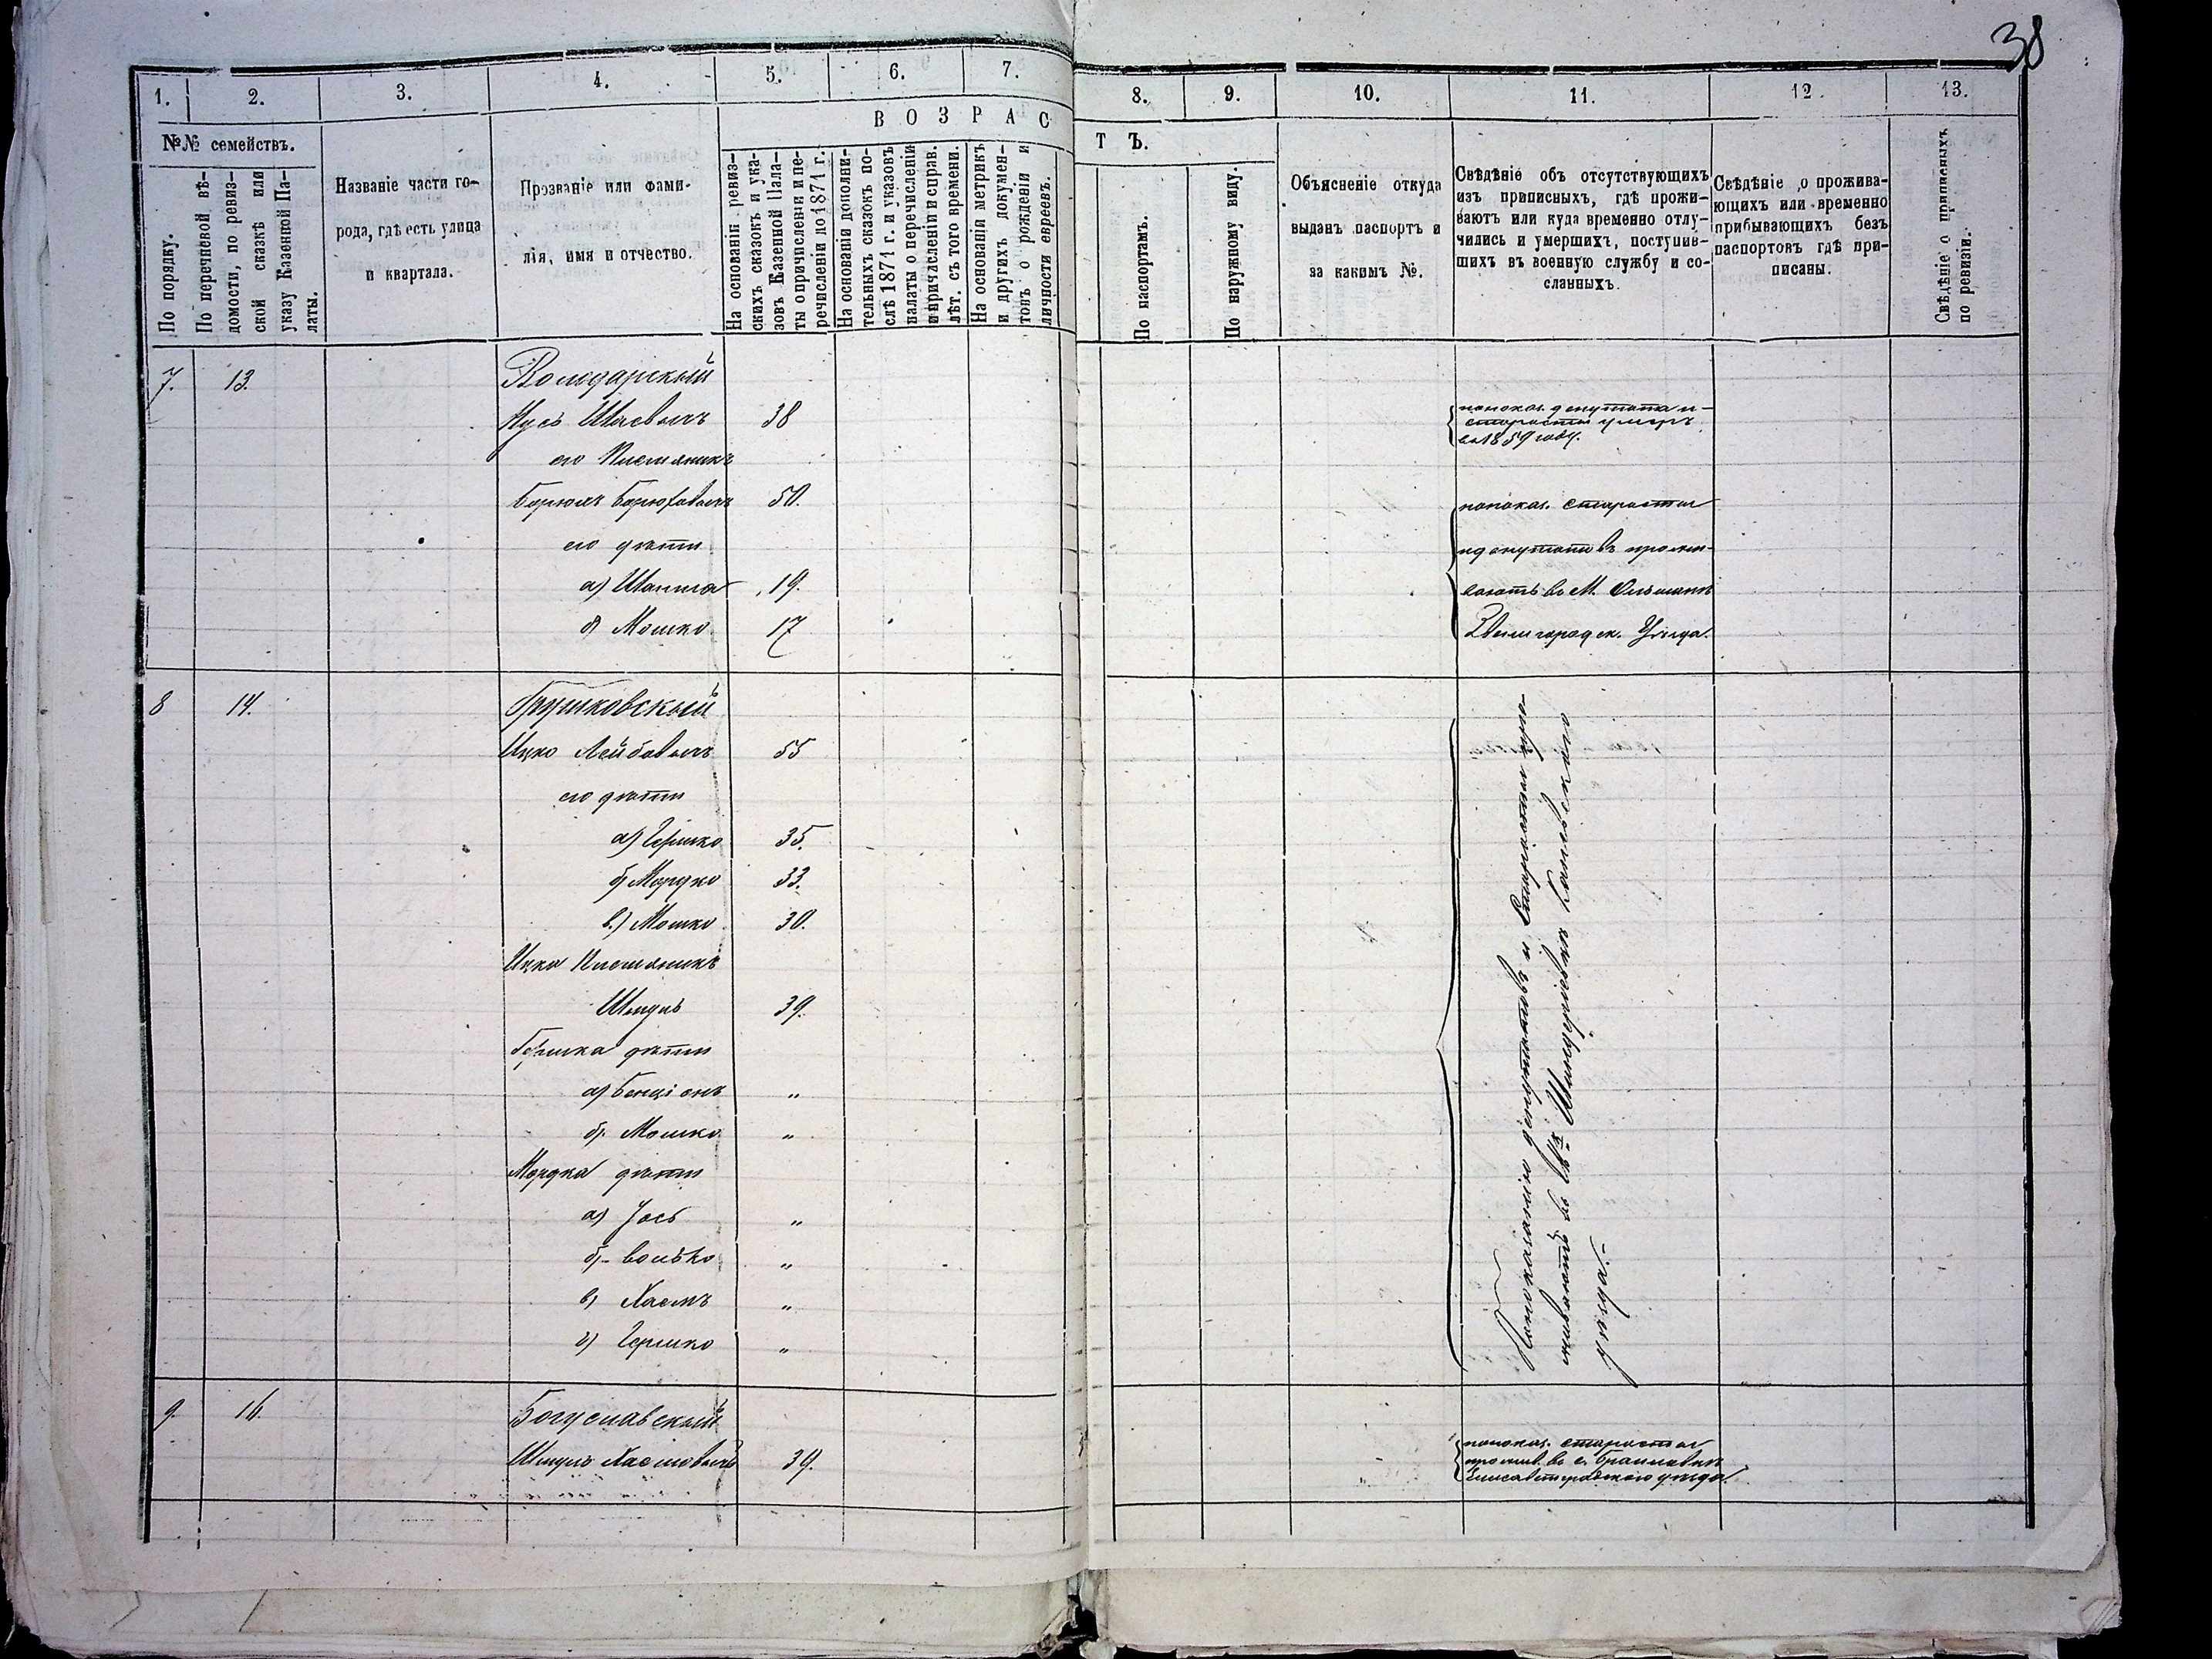 38
1. 2. 3. 4. 5. 6. 7. 8. 9. 10. 11. 12. 13.
№№ семействъ.
По порядку.
По перечневой вѣ-
домости, по ревиз-
ской сказкѣ или
указу Казенной Па-
латы.
Названіе части го-
рода, гдѣ есть улица
и квартала.
Прозваніе или фами-
лія, имя и отчество.
ВОЗРАСТЪ.
На основаніи ревиз-
скихъ сказокъ и ука-
зовъ Казенной Пала-
ты о причисленіи и пе-
речисленіи до 1871 г.
На основаніи дополни-
тельныхъ сказокъ по-
слѣ 1871 г. и указовъ
палаты о перечисленіи
и причисленіи и справ.
лѣт. съ того времени.
На основаніи метрикъ
и другихъ докумен-
товъ о рожденіи и
личности евреевъ.
По паспортамъ.
По наружному виду.
Объясненіе откуда
выданъ паспортъ и
за какимъ №.
Свѣдѣніе объ отсутствующихъ
изъ приписныхъ, гдѣ прожи-
ваютъ или куда временно отлу-
чились и умершихъ, поступив-
шихъ въ военную службу и со-
сланныхъ.
Свѣдѣніе о прожива-
ющихъ или временно
прибывающихъ безъ
паспортовъ гдѣ при-
писаны.
Свѣдѣніе о приписныхъ
по ревизіи.
7. 13. Володарскый
Нусь Шаевычъ 38
по показ. депутата и
старосты умеръ
въ 1859 году.
его Племяникъ
Борюхъ Борюховычъ 50.
по показ. старосты
его дѣти
и депутатовъ прожи-
а) Шапша 19.
ваютъ въ М. Ольшанѣ
б) Мошко 17
Звенигородск. Уѣзда.
8 14. Грушковскый
Ицко Лейбовычъ 55
его дѣти
а) Гершко 35.
б) Мордко 33.
в.) Мошко 30.
Ицка Племяникъ
Шмуль 39.
Гершка дѣти
а) Бенціонъ "
б). Мошко "
Мордка дѣти
а) Іось "
б). Волько "
в) Хаемъ "
г) Гершко "
По показанію депутатовъ и Старосты про-
живаютъ въ Шендеровкѣ Каневского
уѣзда.
9. 16. Богуславскый
Шмуль Хаемовычъ 39.
по показ. старосты
прожив. въ с.
Елисаветградского уѣзда.